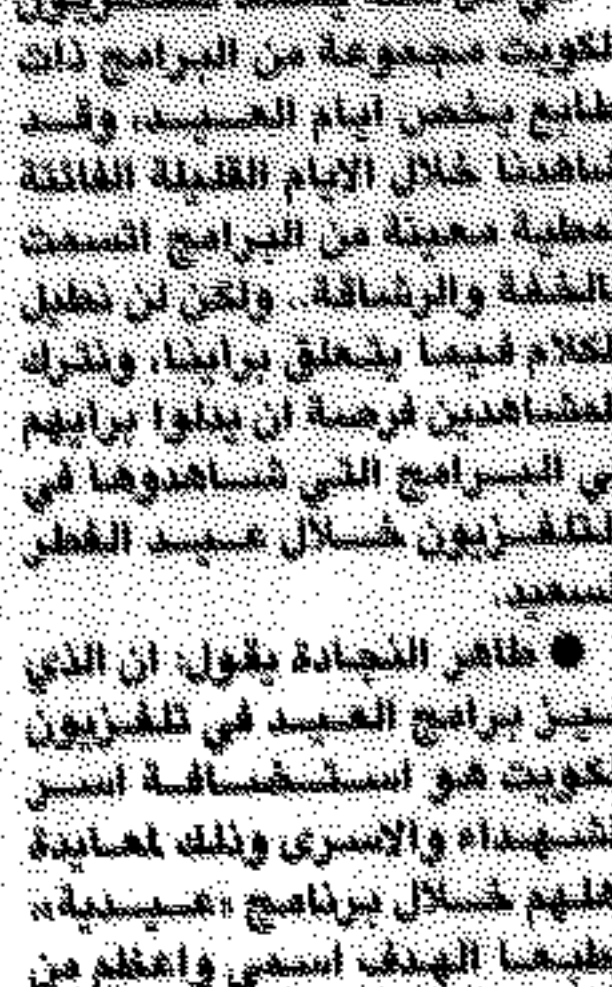 لكويت مجموعة من البرامج ذات
طابع يخص ايام العيد، وقد
شاهدنا خلال الايام القليلة الفائتة
معينة من البرامج اتسمت
بالخفة والرشاقة.. ولكن لن نطيل
لكلام فيما يتعلق برأينا، ونترك
لمشاهدين فرصة ان يدلوا برأيهم
ي البرامج التي شاهدوها في
لتلفزيون خلال عيد الفطر
لسعيد.
● طاهر النجادة يقول: ان الذي
ميز برامج العيد في تلفزيون
لكويت هو استضافة اسر
لشهداء والاسرى وذلك لمعايدة
خلال برنامج «عيدية»،
طبعا الهدف اسمى واعظم من